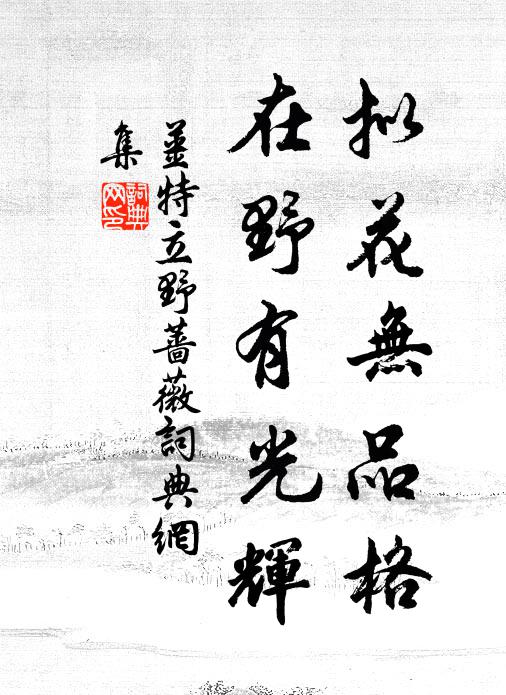 拟花無品格
在野有光輝
姜特立野薔薇詞典網
集
詞典网印